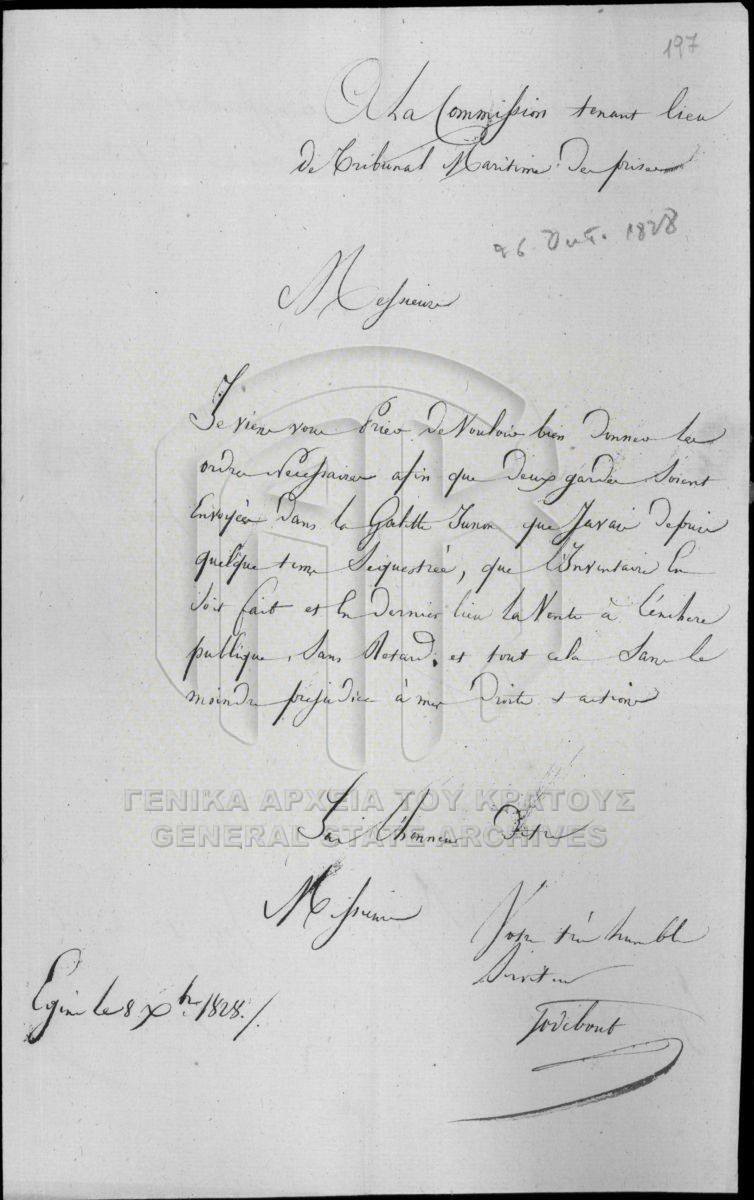 197
A La Commission tenant lieu
de Tribunal Maritime des prises
26 Oct. 1828
Messieurs
Je viens vous Prier de Vouloir bien donner les
ordres Nécessaires afin que deux gardes soient
Envoyées dans la Goëlette Junon que J'avais depuis
quelque tems Sequestrée, que l'Inventaire En
soit fait et En dernier lieu la Vente à l'enchere
publique, Sans Retard, et tout cela Sans le
moindre préjudice à mes Droits & actions
ΓΕΝΙΚΑ ΑΡΧΕΙΑ ΤΟΥ ΚΡΑΤΟΥΣ
GENERAL STATE ARCHIVES
J'ai l'honneur d'Etre
Messieurs
Votre très humble
Serviteur
Egine le 8 Xbre 1828 ./.